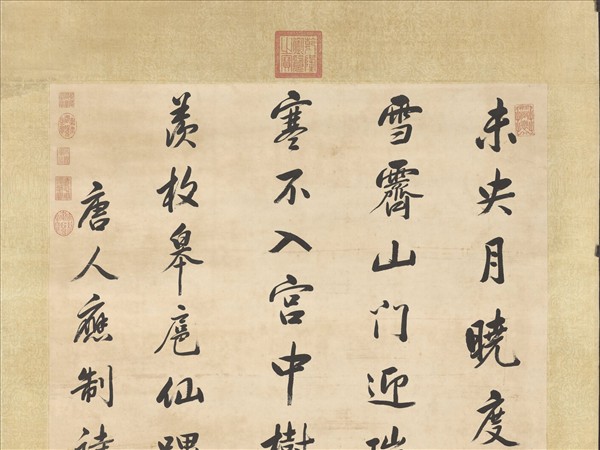 未央月曉度
雪霽山門迎瑞
寒不入宮中樹
羨枚皋扈仙蹕
唐人應制詩